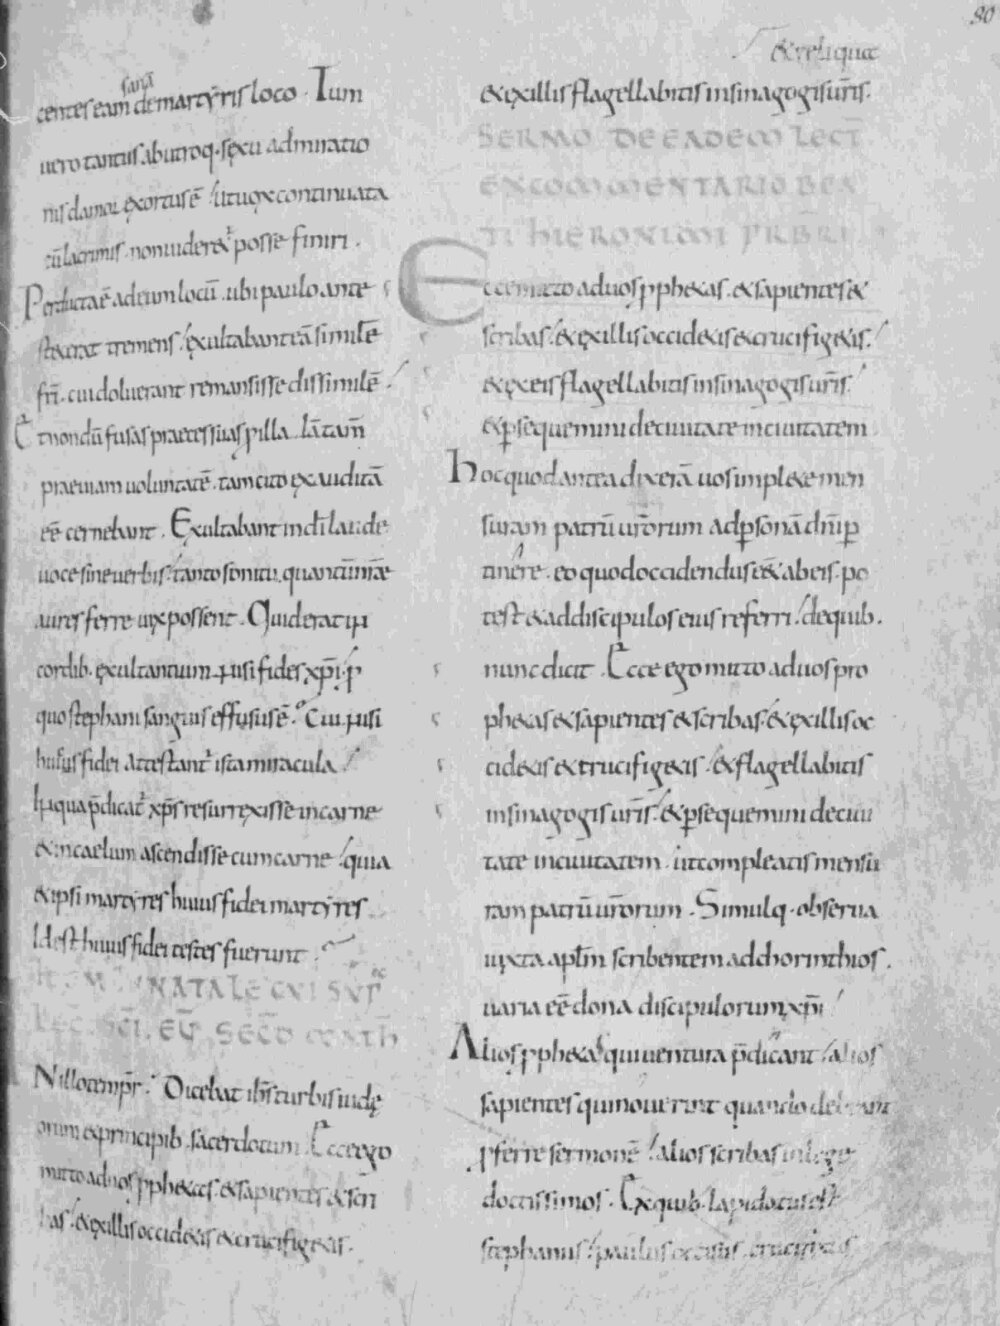 80
sanā
centes eam de martyris loco. Tum
uero tantus ab utroq. sexu admiratio
nis clamor exortus ē ut uox continuata
cū lacrimis. non uideret͛ posse finiri.
Perductaē ad eum locū. ubi paulo ante
steterat tremens. exultabant eā similē
frī. cui doluerant remansisse dissimilē.
Et nondū fusas praeces suas p illa. Iā tam̄
praeuiam uoluntatē. tam cito exauditā
eē cernebant. Exultabant in dī laude
uoce sine uerbis. tanto sonitu. quantū nr̄ae
aures ferre uix possent. Quid erat in
cordib. exultantium. nisi fides xp̄i. p
quo stephani sanguis effusus ē. Cui nisi
huius fidei attestant͛ ista miracula.
In qua p̄dicat͛ xp̄s resurrexisse in carne
& in caelum ascendisse cum carne. quia
& ipsi martyres huius fidei martyres.
Id est huius fidei testes fuerunt.
NATALE CUI SUP͛
LEC. SC̄I. EUG̅. SECD̄ MATH
N illo tempr̄. Dicebat ih̄s turbis iudę
orum & principib. sacerdotum. Ecce ego
mitto ad uos pphetas. & sapientes & scri
bas. & ex illis occidetis & crucifigetis.
& reliqua
& ex illis flagellabitis in sinagogis ur̄is.
SERMO DE EADEM LECT̄
EX COMMENTARIO BEA
TI HIERONIMI PRB̄RI
Ecce mitto ad uos pphetas. & sapientes &
scribas. & ex illis occidetis & crucifigetis.
& ex eis flagellabitis in sinagogis ur̄is.
& psequemini de ciuitate in ciuitatem.
Hoc quod antea dixerā uos implete men
suram patrū ur̄orum ad psonā dn̄i p
tinere. eo quod occidendus eēt ab eis. po
test & ad discipulos eius referri. de quib.
nunc dicit. Ecce ego mitto ad uos pro
phetas & sapientes & scribas. & ex illis oc
cidetis & crucifigetis. & flagellabitis
in sinagogis ur̄is. & psequemini de ciui
tate in ciuitatem. ut compleatis mensu
ram patrū ur̄orum. Simulq. obserua
iuxta aplm̄ scribentem ad chorinthios.
uaria eē dona discipulorum xp̄i
Alios pphetas qui uentura p̄dicant. alios
sapientes qui nouerint quando debeant
pferre sermonē. alios scribas in lege
doctissimos. Ex quib. lapidatus est
stephanus. paulus occisus. crucifixus